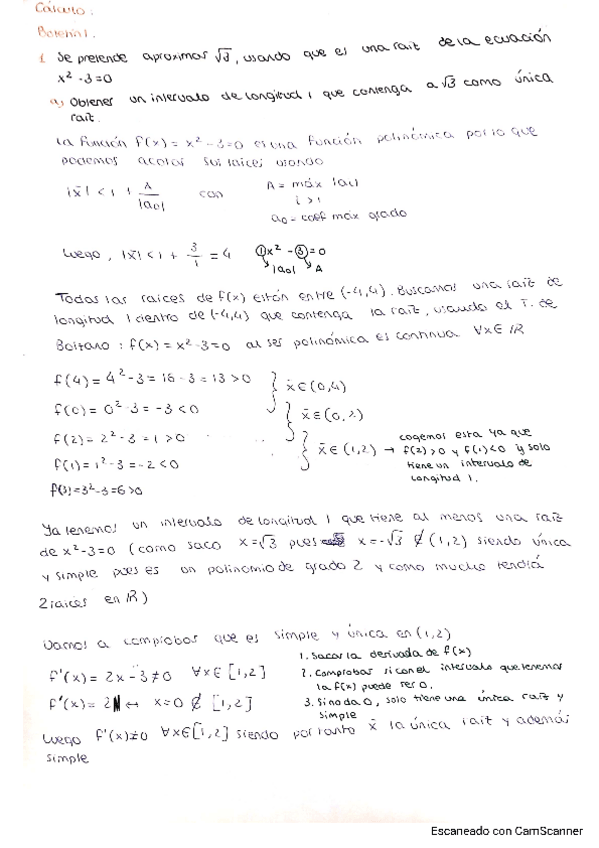 Cálculo:
Boletín 1.
1. Se pretende aproximar √3, usando que es una raíz de la ecuación
x² - 3 = 0
a) Obtener un intervalo de longitud 1 que contenga a √3 como única
raíz.
La función f(x) = x² - 3 = 0 es una función polinómica por lo que
podemos acotar sus raíces usando
|x̄| < 1 + A/|a₀| con A = máx |aᵢ|
i > 1
a₀ = coef máx grado
Luego, |x̄| < 1 + 3/1 = 4 ①x² - ③ = 0
|a₀| A
Todas las raíces de f(x) están entre (-4,4). Buscamos una raíz de
longitud 1 dentro de (-4,4) que contenga la raíz, usando el T. de
Bolzano: f(x) = x² - 3 = 0 al ser polinómica es continua ∀x ∈ ℝ
f(4) = 4² - 3 = 16 - 3 = 13 > 0
x̄ ∈ (0,4)
f(0) = 0² - 3 = -3 < 0
x̄ ∈ (0,2)
f(2) = 2² - 3 = 1 > 0
x̄ ∈ (1,2) → cogemos esta ya que
f(2) > 0 y f(1) < 0 y solo
tiene un intervalo de
longitud 1.
f(1) = 1² - 3 = -2 < 0
f(3) = 3² - 3 = 6 > 0
Ya tenemos un intervalo de longitud 1 que tiene al menos una raíz
de x² - 3 = 0 (como saco x = √3 pues x = -√3 ∉ (1,2) siendo única
y simple pues es un polinomio de grado 2 y como mucho tendrá
2 raíces en ℝ)
Vamos a comprobar que es simple y única en (1,2)
f'(x) = 2x - 3 ≠ 0 ∀x ∈ [1,2]
f'(x) = 2 ↔ x = 0 ∉ [1,2]
1. Sacar la derivada de f(x)
2. Comprobar si con el intervalo que tenemos
la f(x) puede ser 0.
3. Si no da 0, solo tiene una única raíz y
simple
Luego f'(x) ≠ 0 ∀x ∈ [1,2] siendo por tanto x̄ la única raíz y además
simple
Escaneado con CamScanner